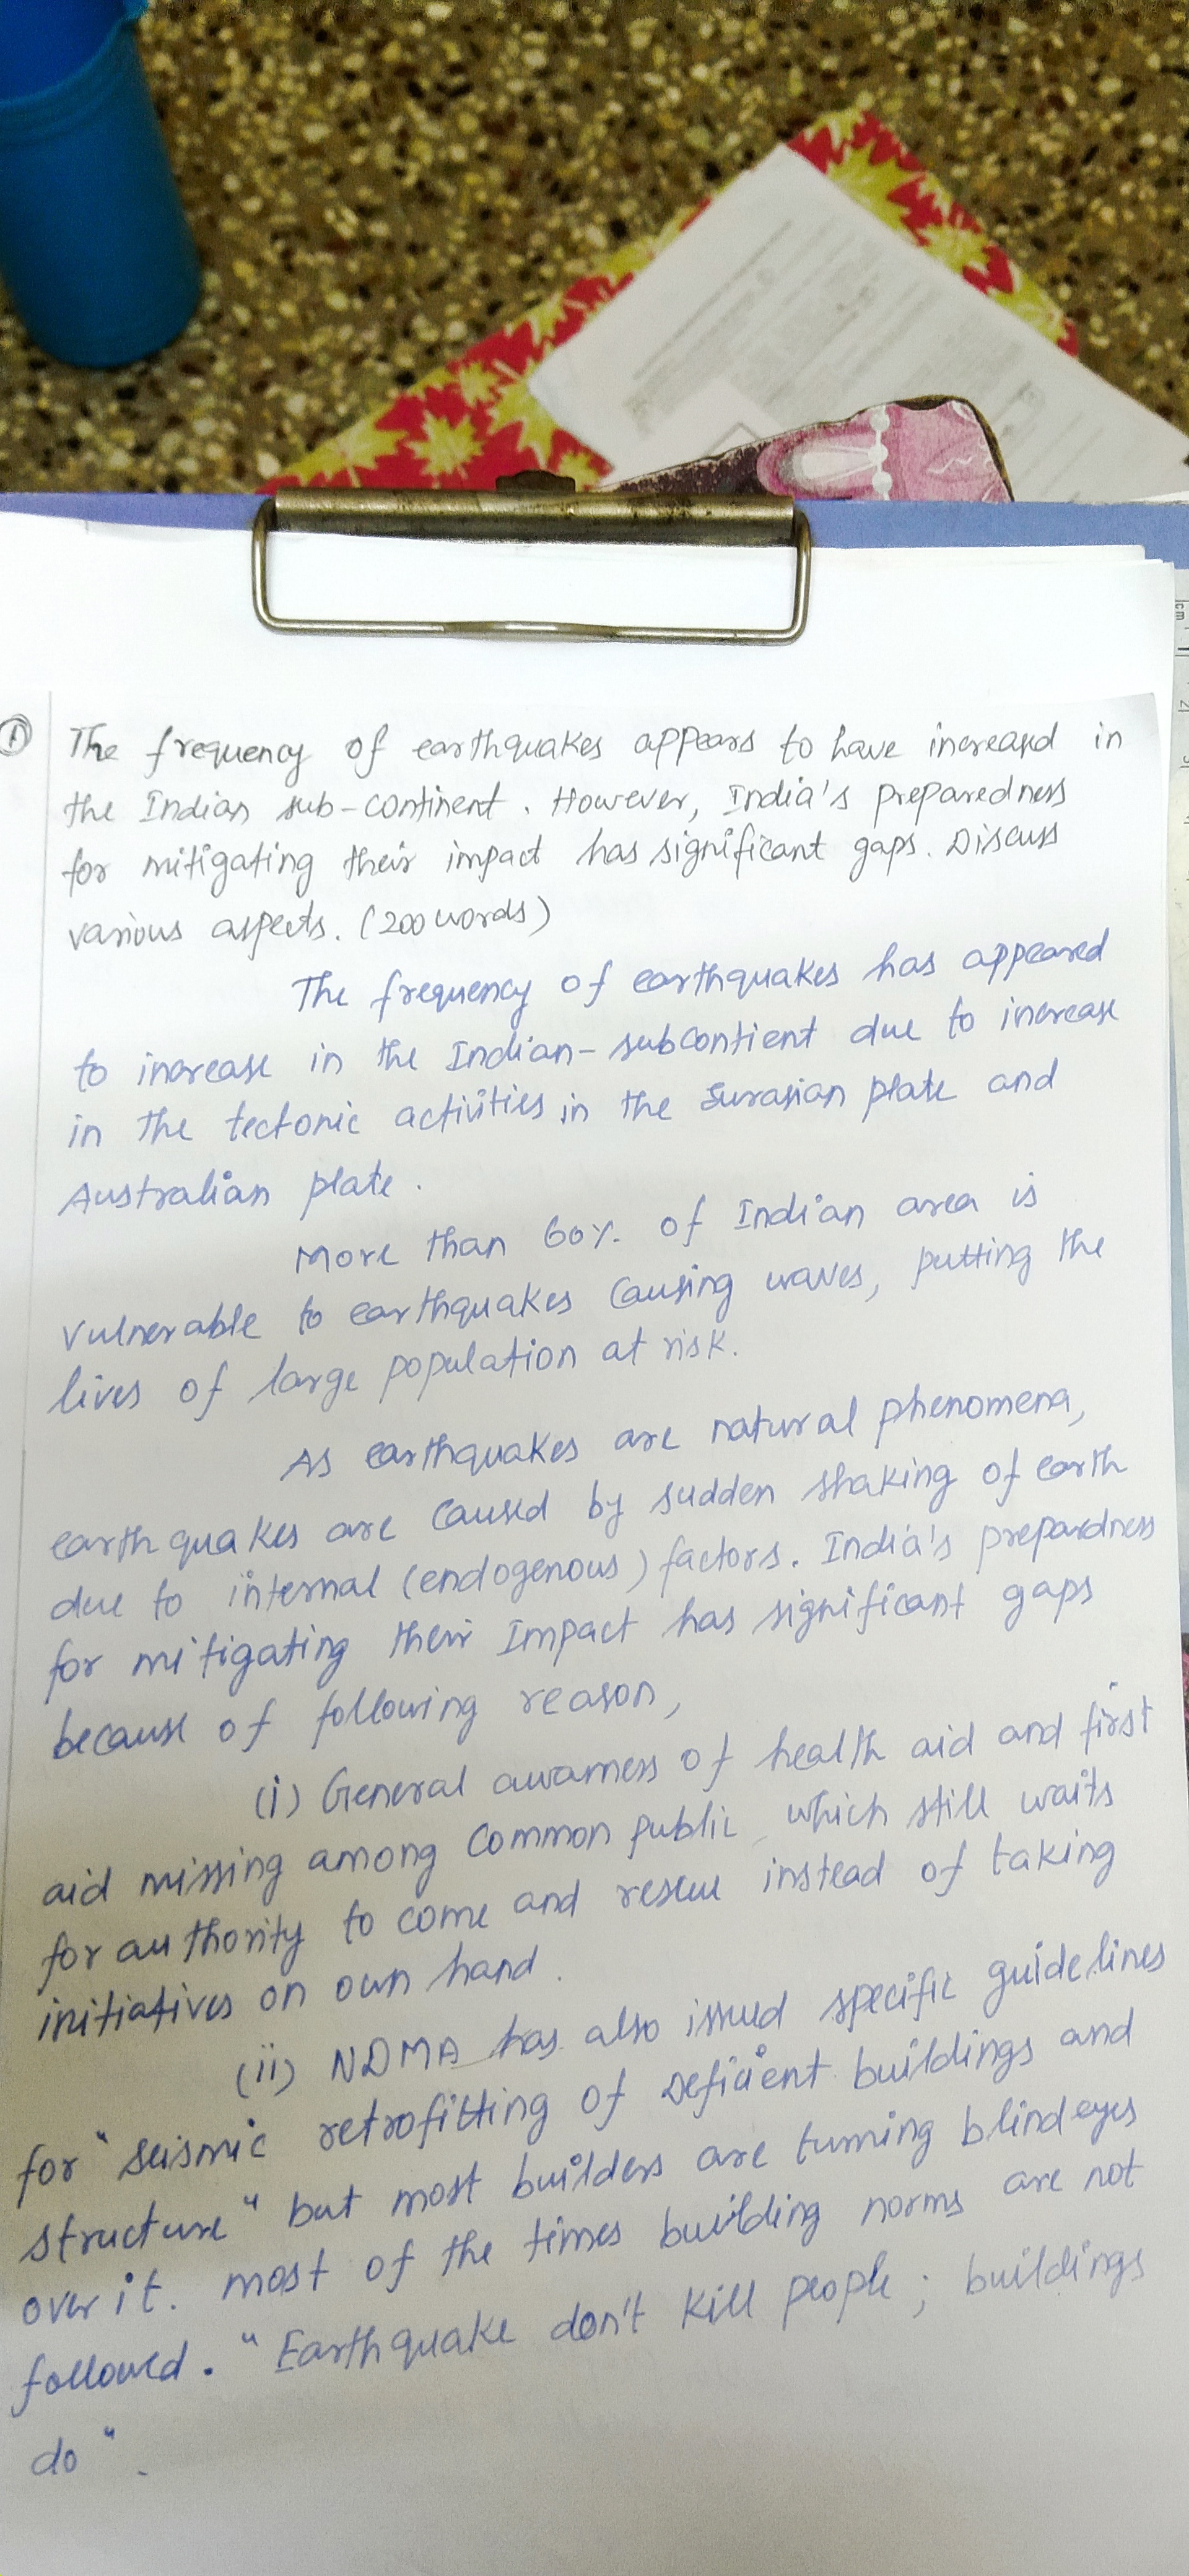 1 The frequency of earthquakes appears to have increased in
the Indian sub-continent. However, India's preparedness
for mitigating their impact has significant gaps. Discuss
various aspects. (200 words)
The frequency of earthquakes has appeared
to increase in the Indian-subcontient due to increase
in the tectonic activities in the Eurasian plate and
Australian plate.
More than 60% of Indian area is
vulnerable to earthquakes Causing waves, putting the
lives of large population at risk.
As earthquakes are natural phenomena,
earthquakes are Caused by sudden shaking of earth
due to internal (endogenous) factors. India's prepardness
for mitigating their Impact has significant gaps
because of following reason,
(i) General awarness of health aid and first
aid missing among Common public which still waits
for authority to come and rescue instead of taking
initiatives on own hand.
(ii) NDMA has also issued specific guidelines
for "seismic retrofitting of Deficient buildings and
structure" but most builders are turning blind eyes
over it. most of the times building norms are not
followed. "Earthquake don't kill people; buildings
do".
cm